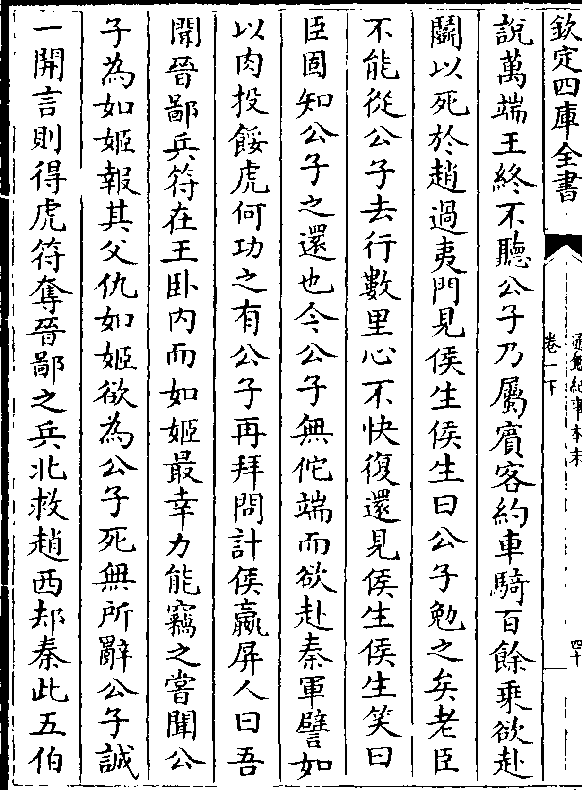 欽定四庫全書
通鑑紀事本末
卷一下
四十
說萬端王終不聽公子乃屬賓客約車騎百餘乗欲赴
鬭以死於趙過夷門見侯生侯生曰公子勉之矣老臣
不能從公子去行數里心不快復還見侯生侯生笑曰
臣固知公子之還也今公子無佗端而欲赴秦軍譬如
以肉投餒虎何功之有公子再拜問計侯嬴屏人曰吾
聞晉鄙兵符在王卧内而如姬最幸力能竊之嘗聞公
子為如姬報其父仇如姬欲為公子死無所辭公子誠
一開言則得虎符奪晉鄙之兵北救趙西却秦此五伯